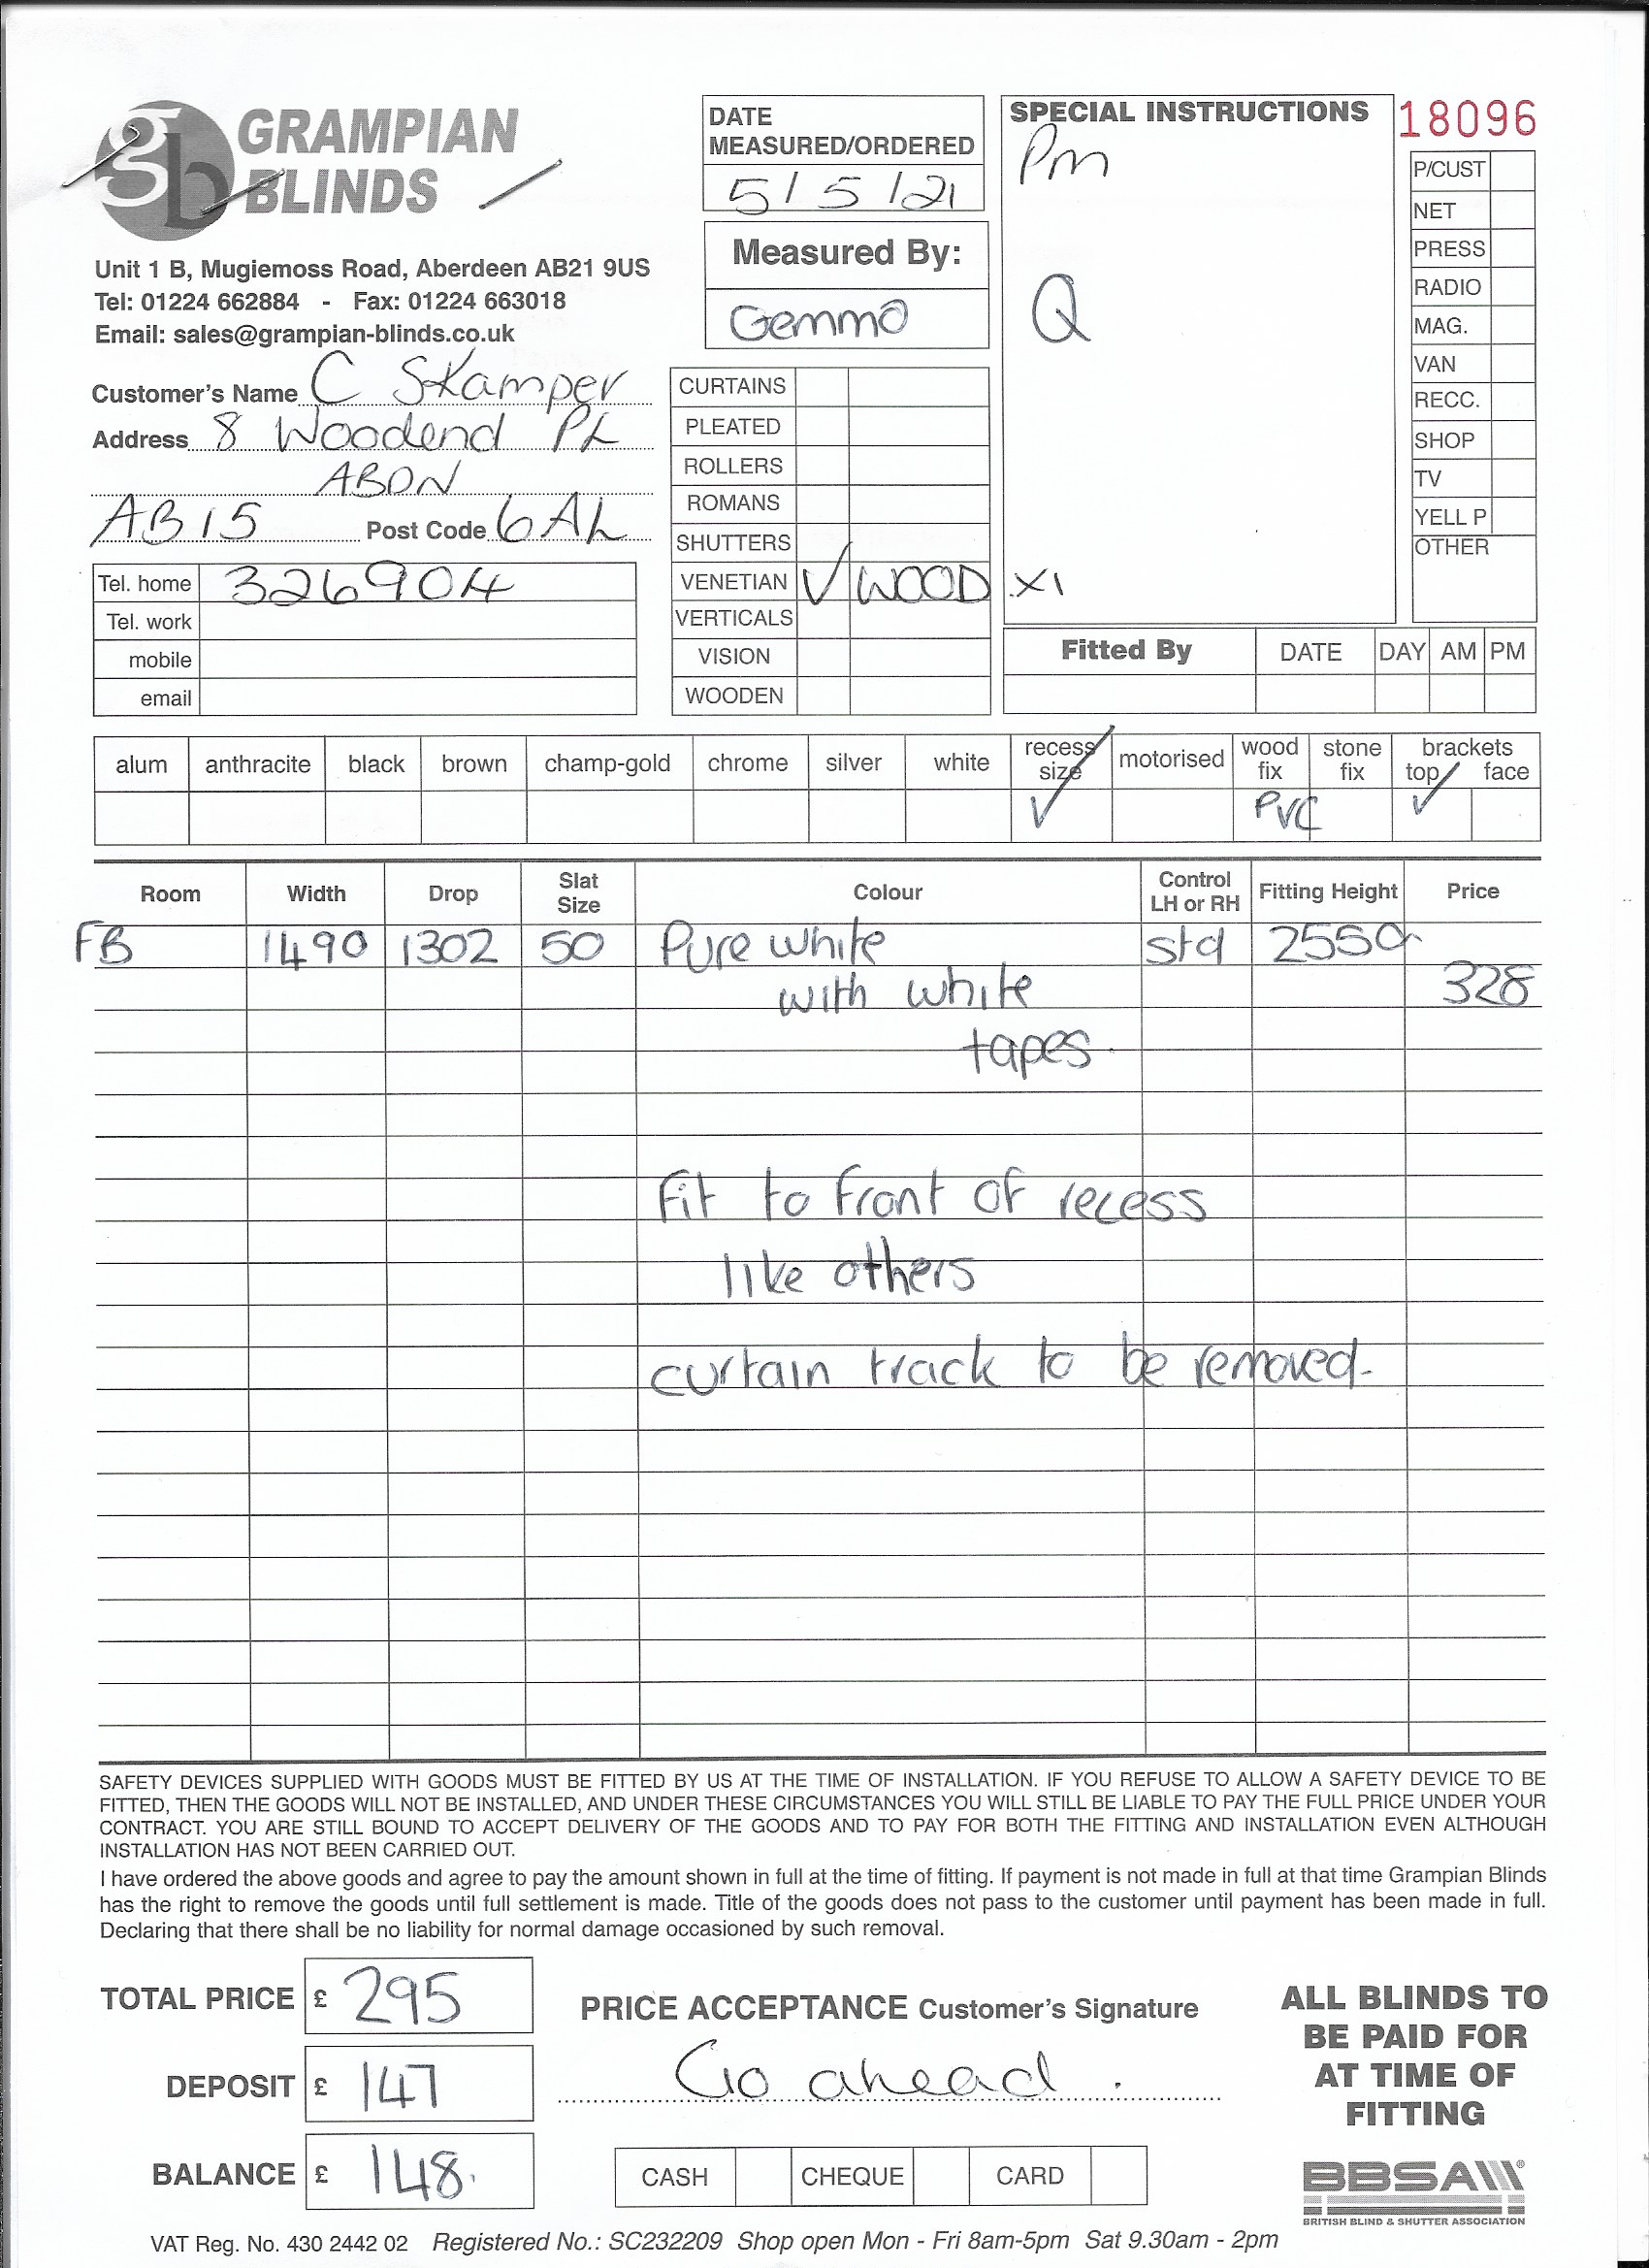 gb GRAMPIAN
BLINDS
Unit 1 B, Mugiemoss Road, Aberdeen AB21 9US
Tel: 01224 662884 - Fax: 01224 663018
Email: sales@grampian-blinds.co.uk
DATE
MEASURED/ORDERED
5/5/21
Measured By:
Gemma
SPECIAL INSTRUCTIONS
Pm
Q
18096
P/CUST
NET
PRESS
RADIO
MAG.
VAN
RECC.
SHOP
TV
YELL P
OTHER
Customer's Name C Skamper
Address 8 Woodend PL
ABDN
AB15 Post Code 6AL
Tel. home 326904
Tel. work
mobile
email
CURTAINS
PLEATED
ROLLERS
ROMANS
SHUTTERS
VENETIAN ✓ WOOD x1
VERTICALS
VISION
WOODEN
Fitted By DATE DAY AM PM
alum anthracite black brown champ-gold chrome silver white recess size motorised wood fix stone fix brackets top face
✓ PVC ✓
Room Width Drop Slat Size Colour Control LH or RH Fitting Height Price
FB 1490 1302 50 Pure white std 2550
with white 328
tapes.
Fit to front of recess
like others
curtain track to be removed.
SAFETY DEVICES SUPPLIED WITH GOODS MUST BE FITTED BY US AT THE TIME OF INSTALLATION. IF YOU REFUSE TO ALLOW A SAFETY DEVICE TO BE
FITTED, THEN THE GOODS WILL NOT BE INSTALLED, AND UNDER THESE CIRCUMSTANCES YOU WILL STILL BE LIABLE TO PAY THE FULL PRICE UNDER YOUR
CONTRACT. YOU ARE STILL BOUND TO ACCEPT DELIVERY OF THE GOODS AND TO PAY FOR BOTH THE FITTING AND INSTALLATION EVEN ALTHOUGH
INSTALLATION HAS NOT BEEN CARRIED OUT.
I have ordered the above goods and agree to pay the amount shown in full at the time of fitting. If payment is not made in full at that time Grampian Blinds
has the right to remove the goods until full settlement is made. Title of the goods does not pass to the customer until payment has been made in full.
Declaring that there shall be no liability for normal damage occasioned by such removal.
TOTAL PRICE £ 295
DEPOSIT £ 147
BALANCE £ 148.
PRICE ACCEPTANCE Customer's Signature
Go ahead.
CASH CHEQUE CARD
ALL BLINDS TO
BE PAID FOR
AT TIME OF
FITTING
BBSA
BRITISH BLIND & SHUTTER ASSOCIATION
VAT Reg. No. 430 2442 02 Registered No.: SC232209 Shop open Mon - Fri 8am-5pm Sat 9.30am - 2pm